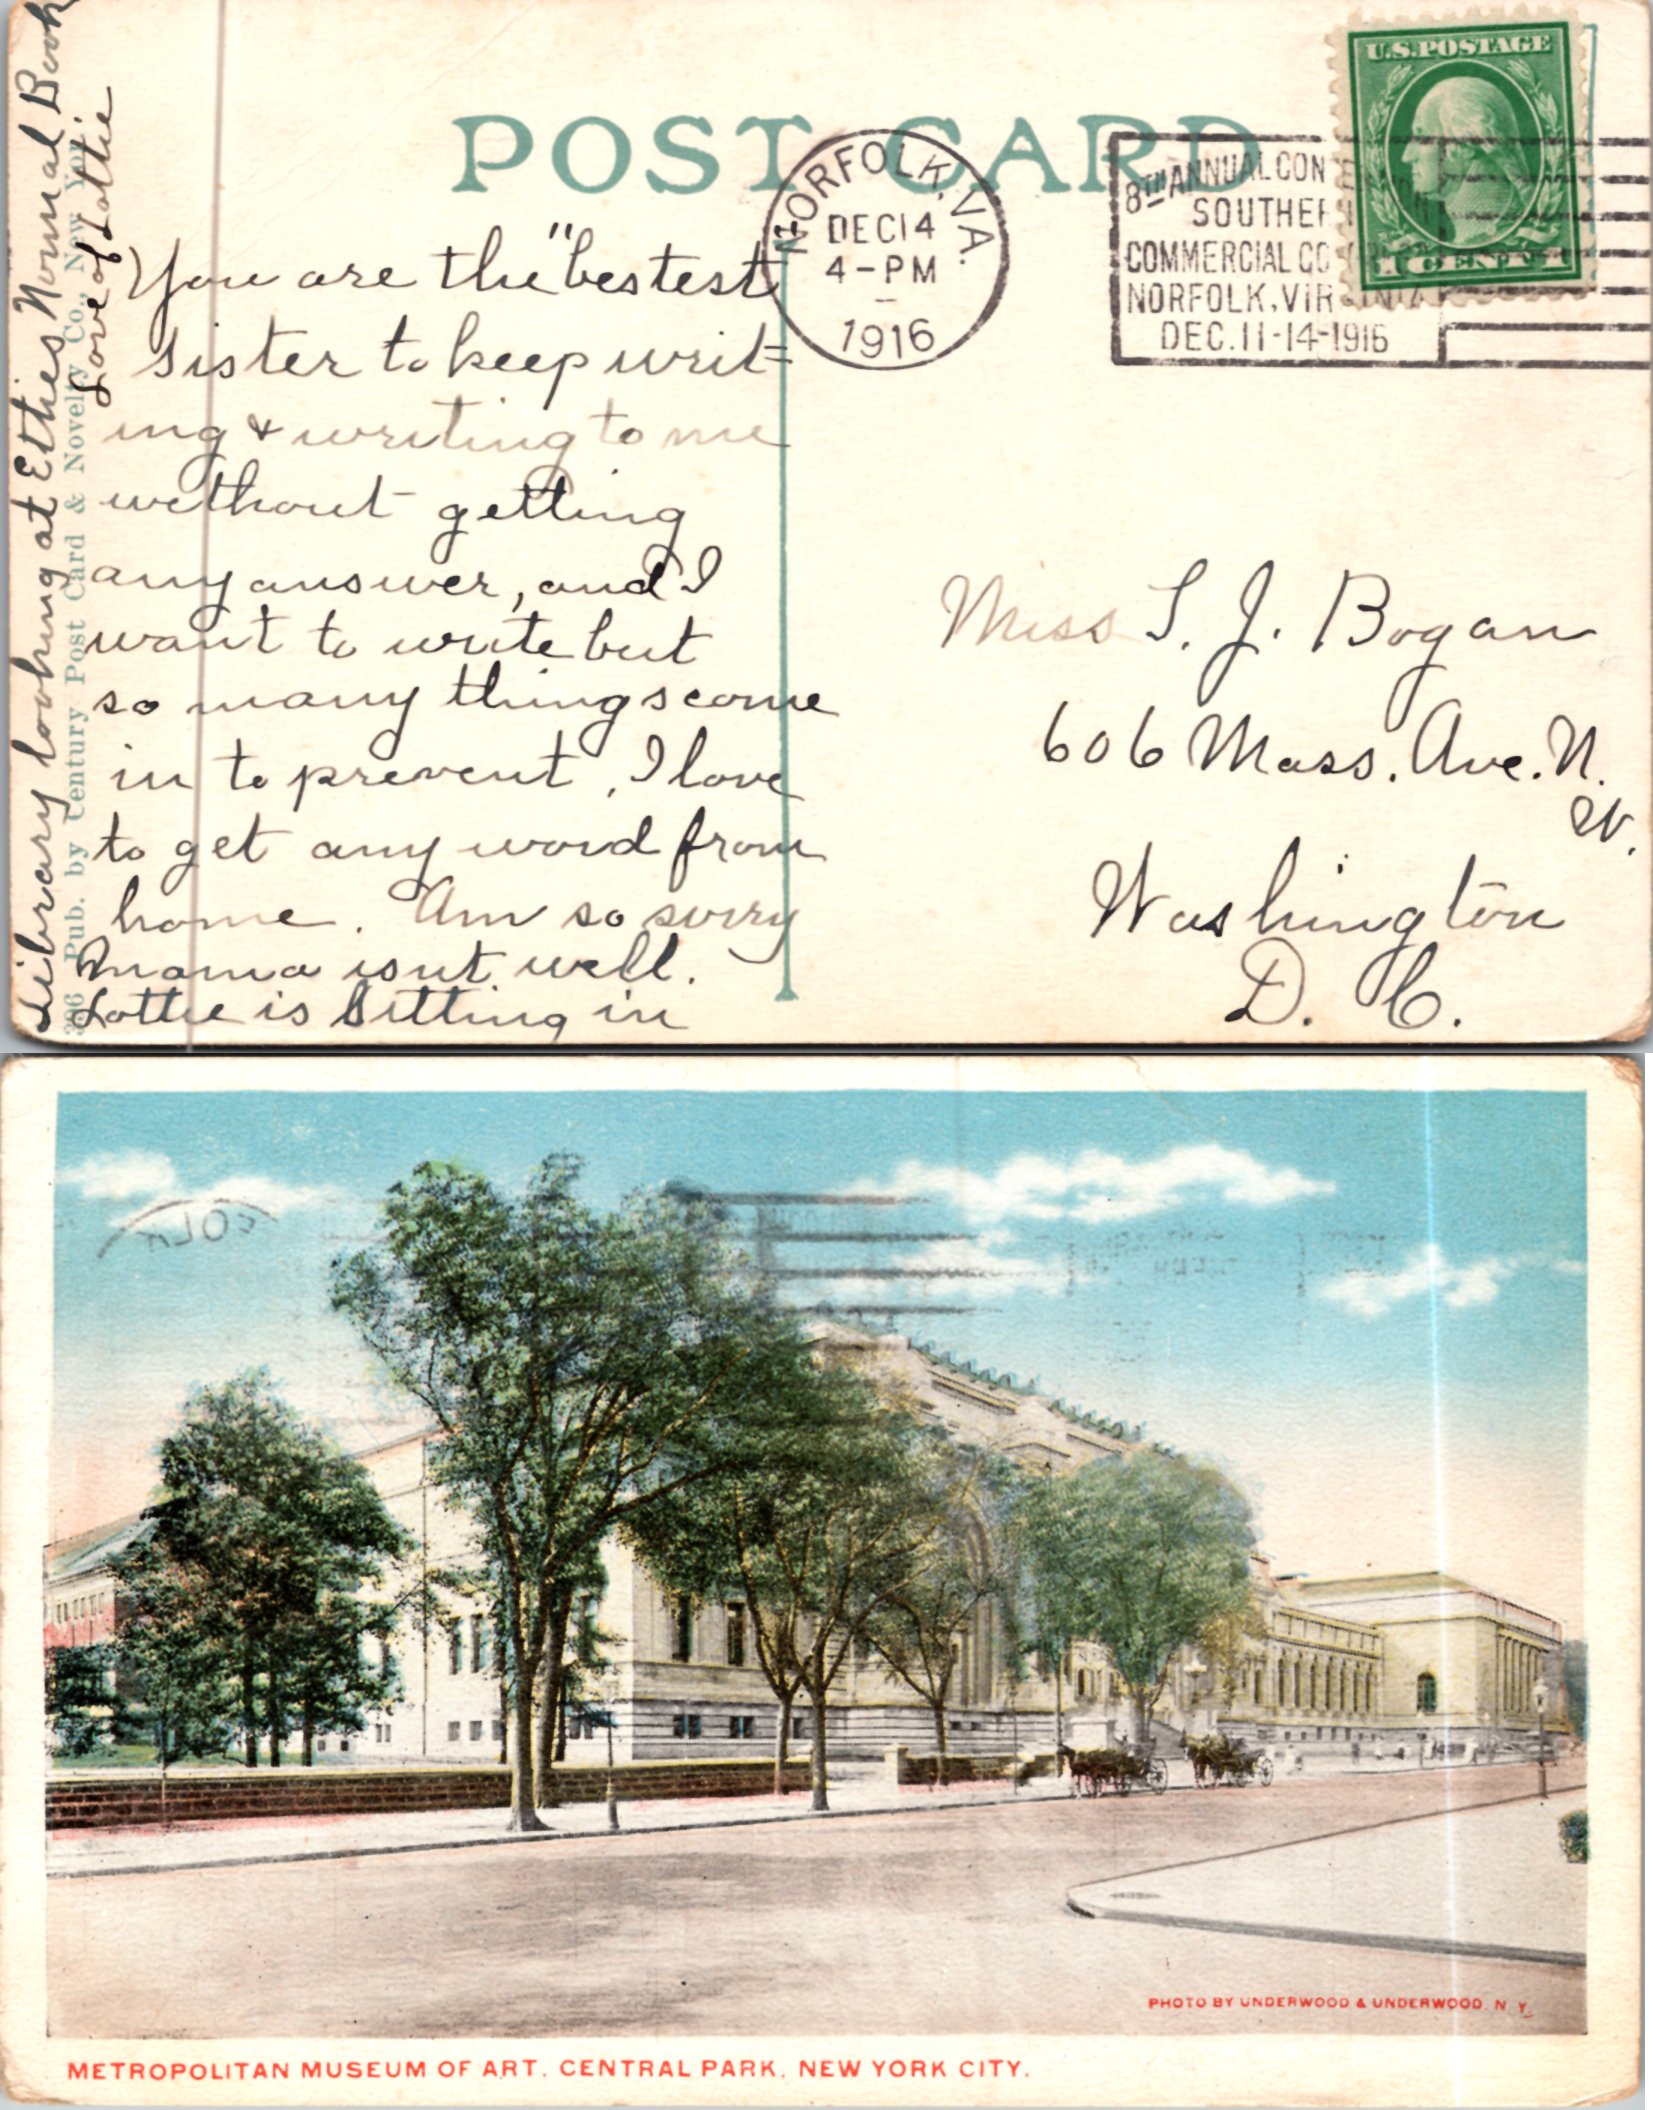 POST CARD
NORFOLK, VA.
DEC 14
4-PM
1916
8TH ANNUAL CON
SOUTHER
COMMERCIAL CO
NORFOLK, VIRGINIA
DEC. 11-14-1916
U.S. POSTAGE
You are the "bestest
sister to keep writ=
ing & writing to me
without getting
any answer, and I
want to write but
so many things come
in to prevent, I love
to get any word from
home. Am so sorry
Mama isnt well.
Lottie is sitting in
Library looking at Ethies Normal Book
Love of Lottie
306 Pub. by Century Post Card & Novelty Co., New York.
Miss S. J. Bogan
606 Mass. Ave. N.
W.
Washington
D. C.
PHOTO BY UNDERWOOD & UNDERWOOD. N. Y.
METROPOLITAN MUSEUM OF ART, CENTRAL PARK, NEW YORK CITY.